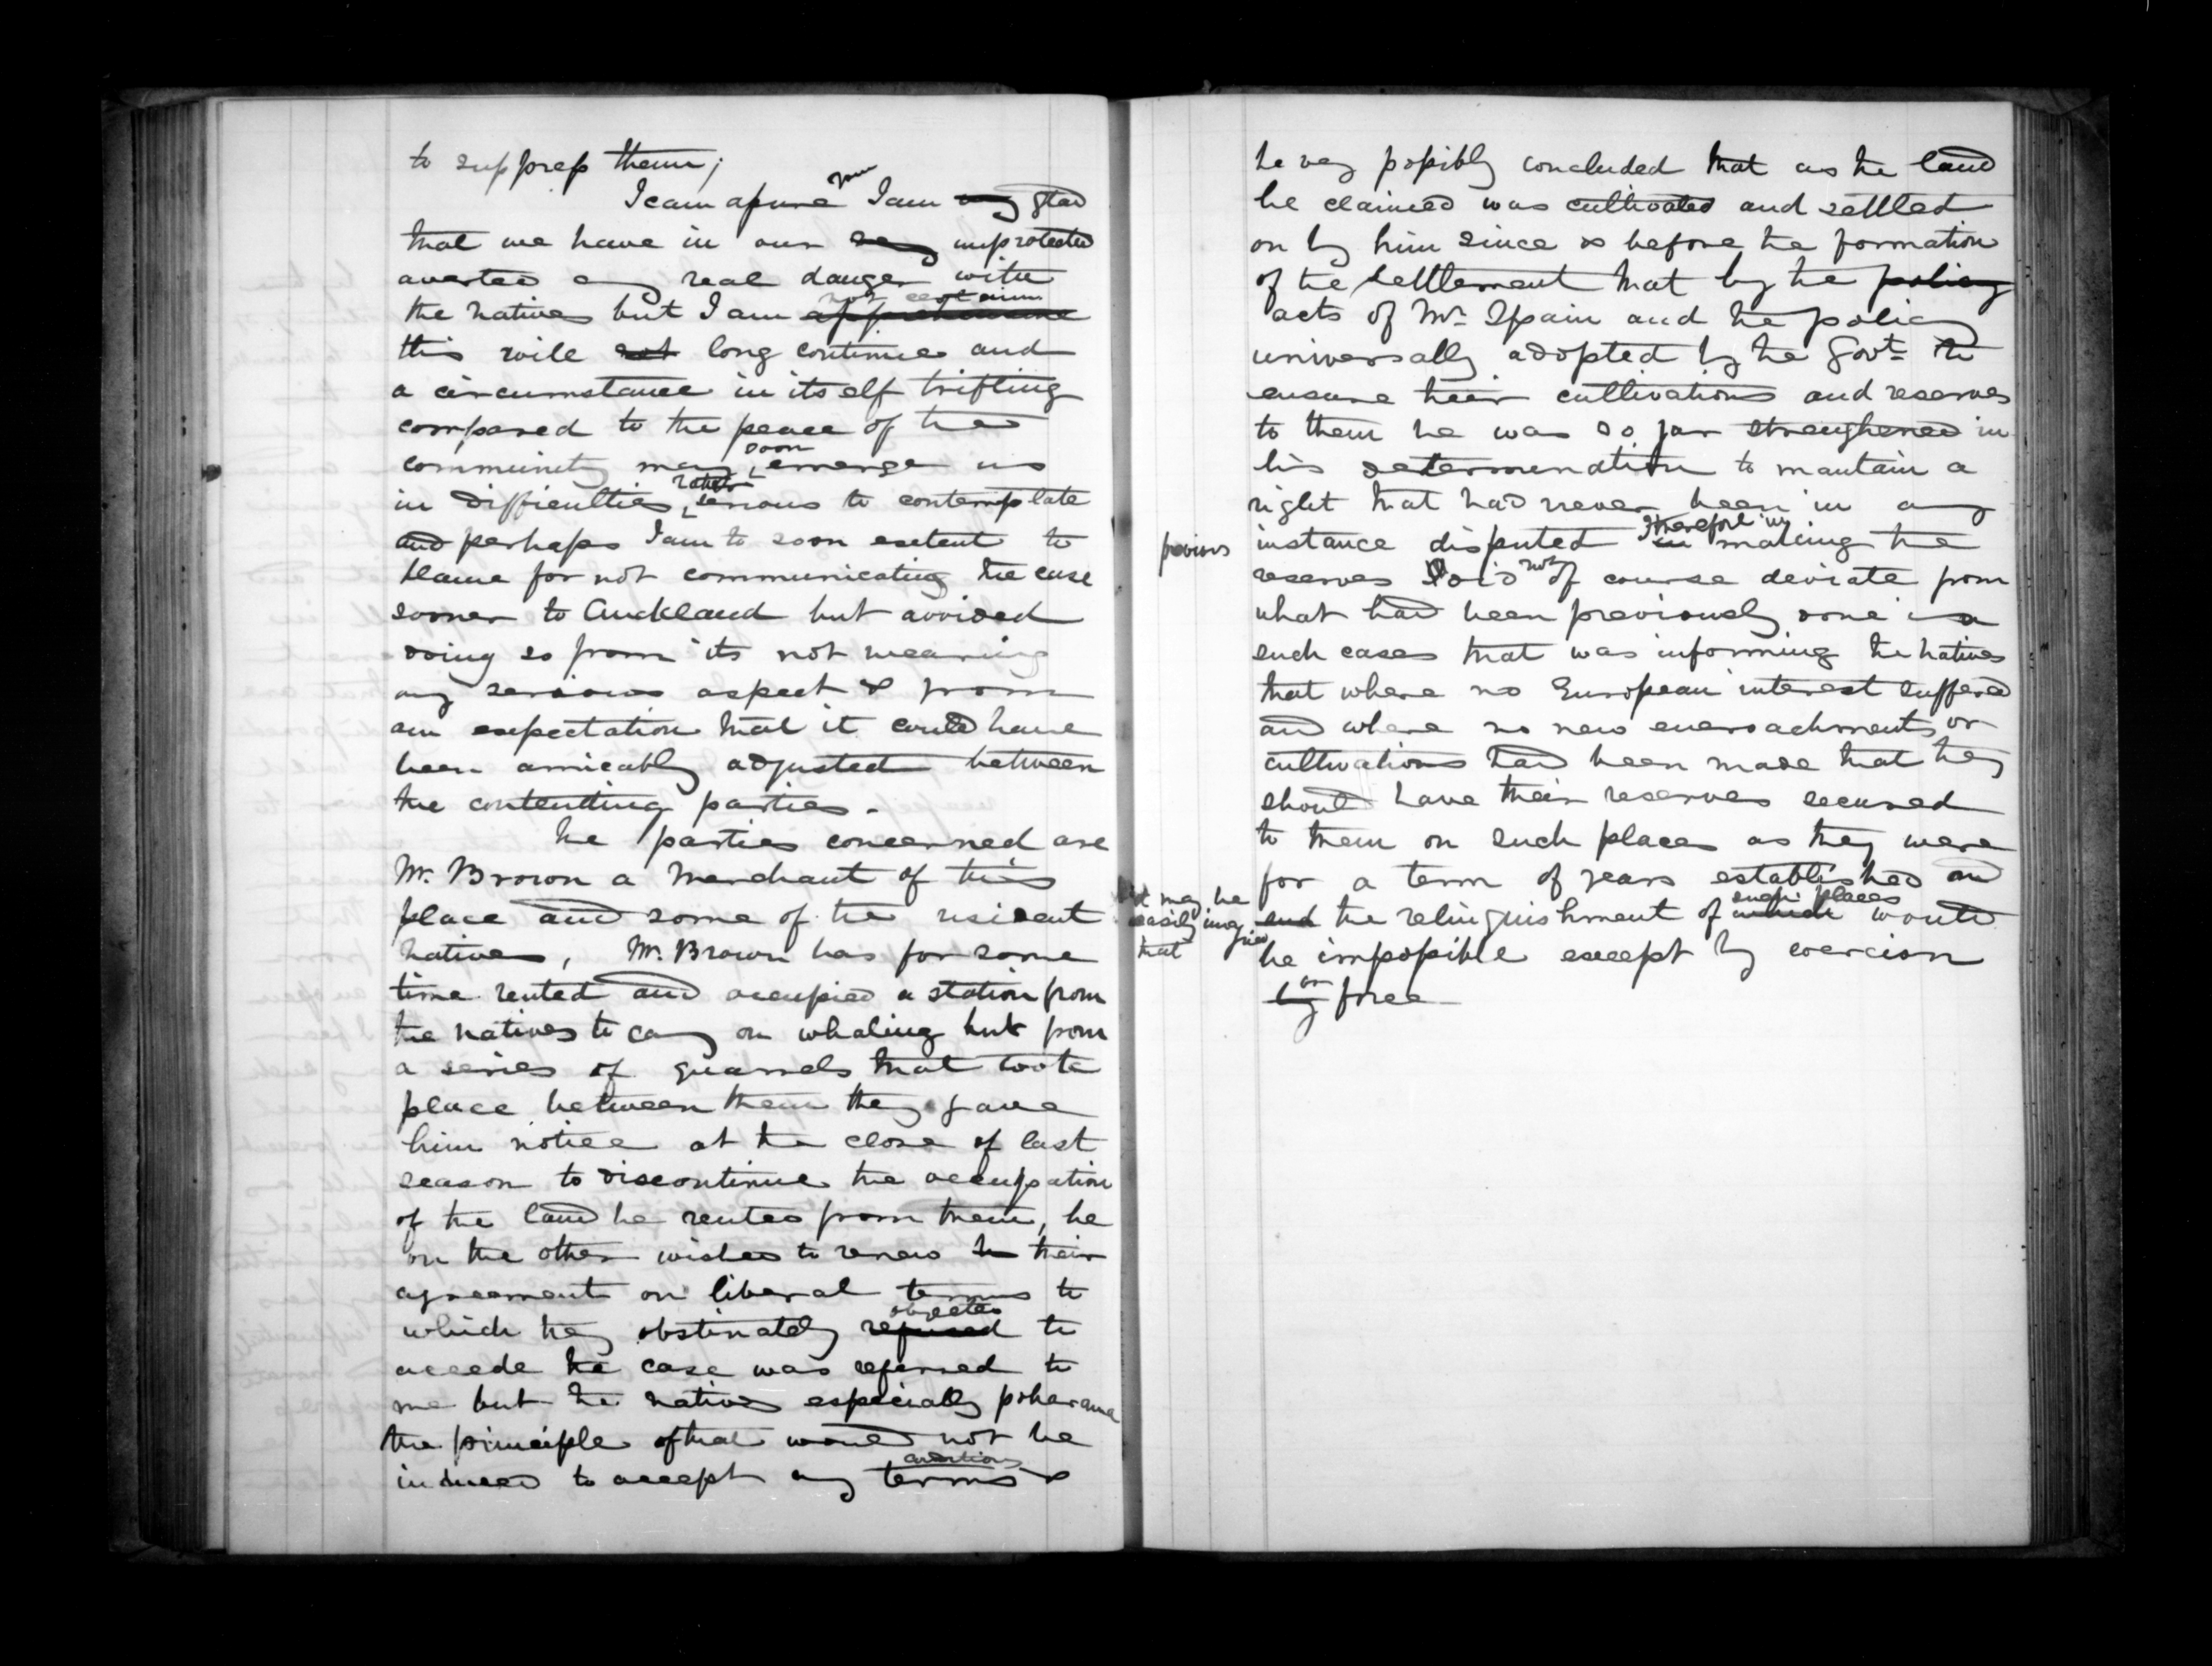 to suppress them;
I can assure you I am very glad
that we have in our unprotected
averted any real danger with
the natives but I am apprehensive not certain
this will not long continue and
a circumstance in itself trifling
compared to the peace of the
community may soon emerge us
in difficulties rather serious to contemplate
and perhaps I am to soon extent to
blame for not communicating the case
sooner to Auckland but avoided
doing so from its not wearing
any serious aspect & from
an expectation that it could have
been amicably adjusted between
the contentting parties.
The parties concerned are
Mr. Brown a Merchant of this
place and some of the resident
natives, Mr. Brown has for some
time rented and occupied a station from
the natives to cary on whaling but from
a series of quarrels that took
place between them they gave
him notice at the close of last
season to discontinue the occupation
of the land he rented from them, he
on the other wished to renew their
agreement on liberal terms to
which they obstinately refused objected to
accede the case was referred to
me but the natives especially poharama
the principle of that would not be
induced to accept any terms conditions &
he very possibly concluded that as the land
he claimed was cultivated and settled
on by him since & before the formation
of the settlement that by the policy
acts of Mr Spain and the policy
universally adopted by the Govt to
ensure their cultivations and reserves
to them he was so far strengthened in
his determination to mantain a
right that had never been in any
previous instance disputed I therefore in making the
reserves did not of course deviate from
what had been previously done in
such cases that was informing the natives
that where no European interest suffered
and where no new encroachments or
cultivations had been made that they
should have their reserves secured
to them on such places as they were
for a term of years established and
it may be easily imagined that and the relinquishment of which such places would
be impossible except by coercion
by or force